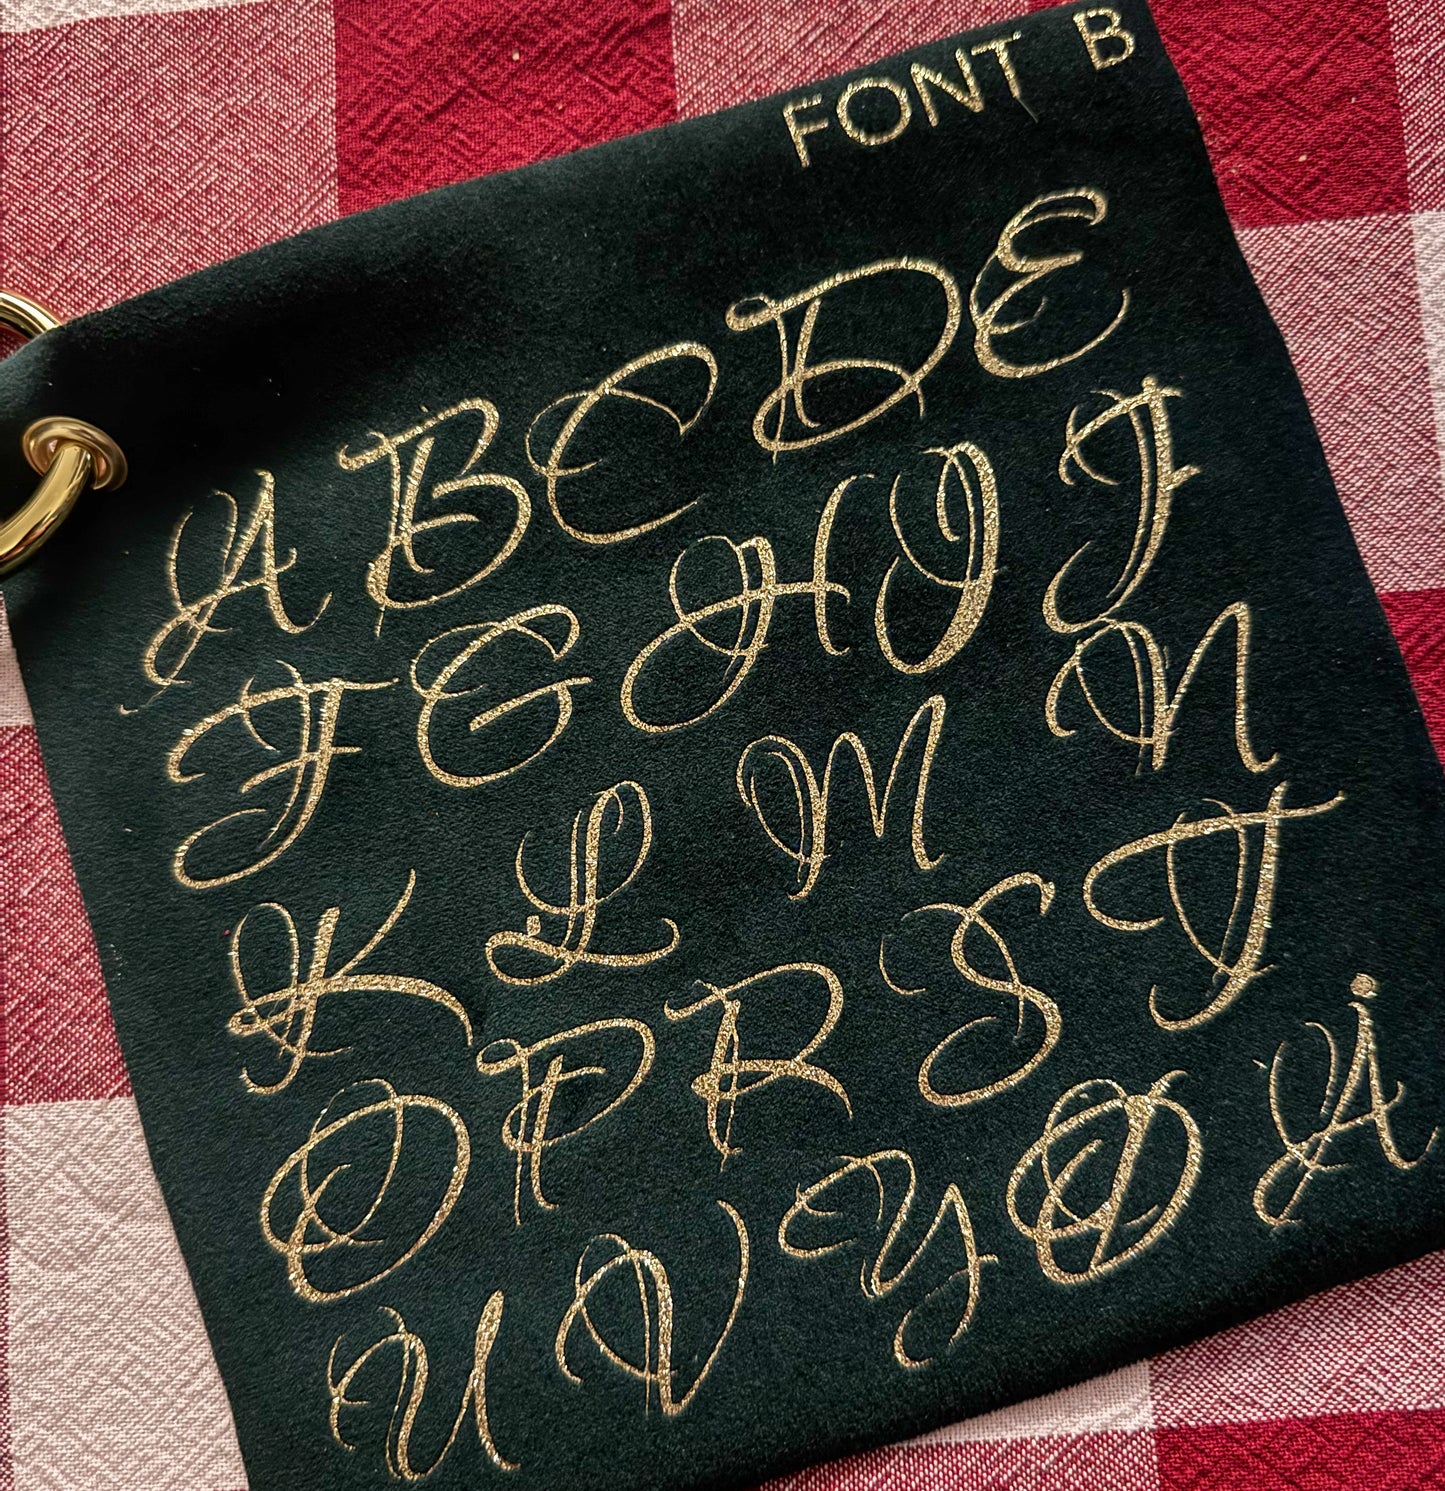 FONT B
A B C D E
F G H I J
K L M N
O P R S T
U V Y Ø Å